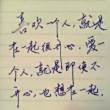 喜欢一个人，就是
在一起很开心，爱一
个人，就是即使不
开心，也想在一起